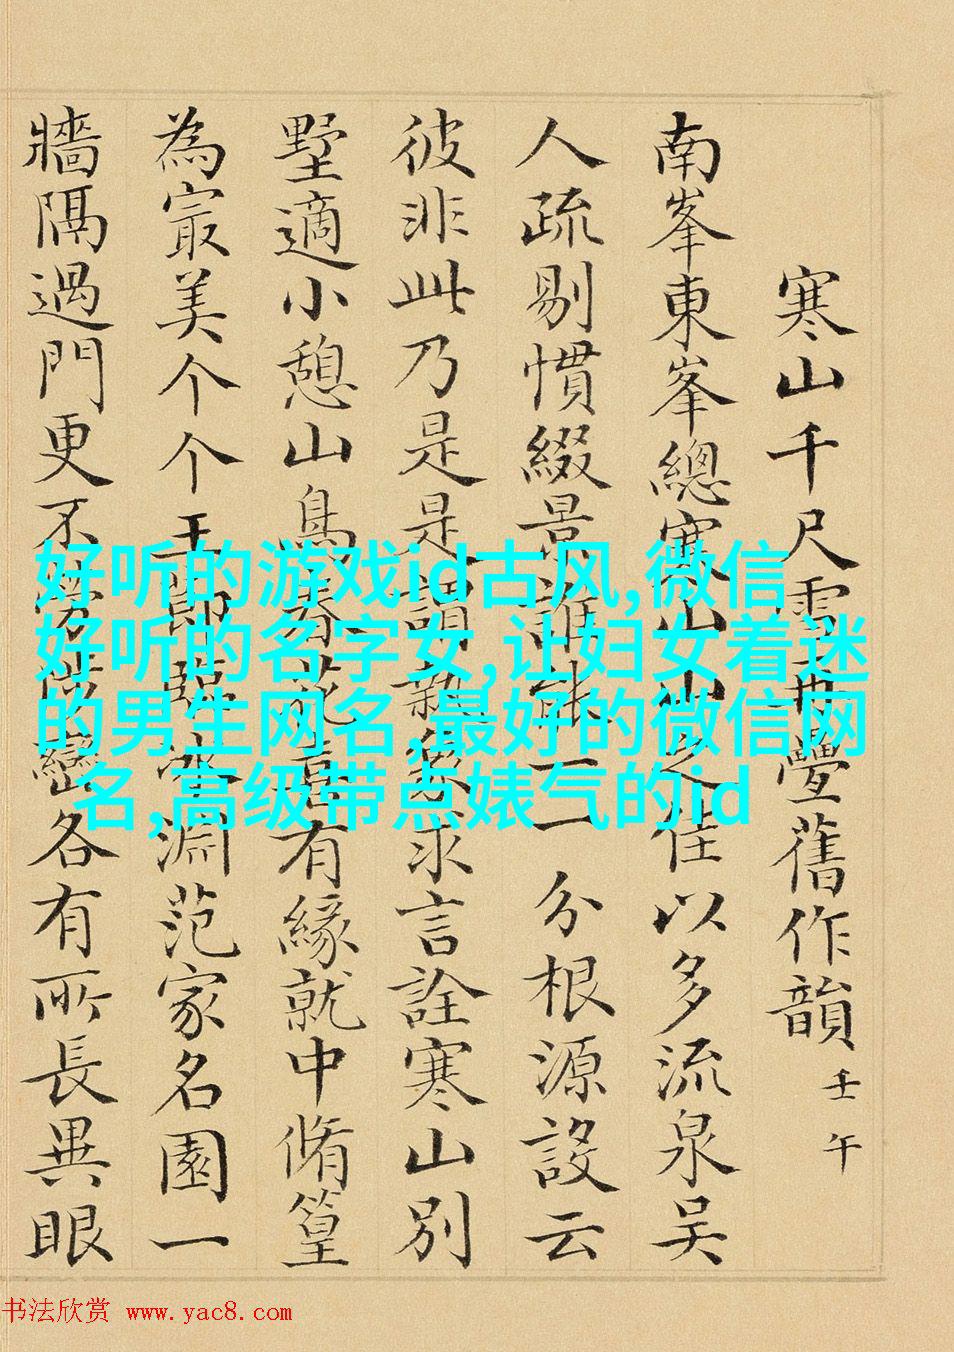 寒山千尺雪再疊舊作韻 壬午
南峯東峯總寒山山之佳以多流泉吴
人疏剔慣綴景誰能一一分根源設云
彼非此乃是是謂象求言詮寒山别
墅適小憩山鳥春花喜有緣就中脩篁
為冣美个个玉節臨冰淵范家名園一
牆隔過門更不勞陟巒各有所長異眼
好听的游戏id古风,微信
好听的名字女,让妇女着迷
的男生网名,最好的微信网
名,高级带点婊气的id
书法欣赏 www.yac8.com